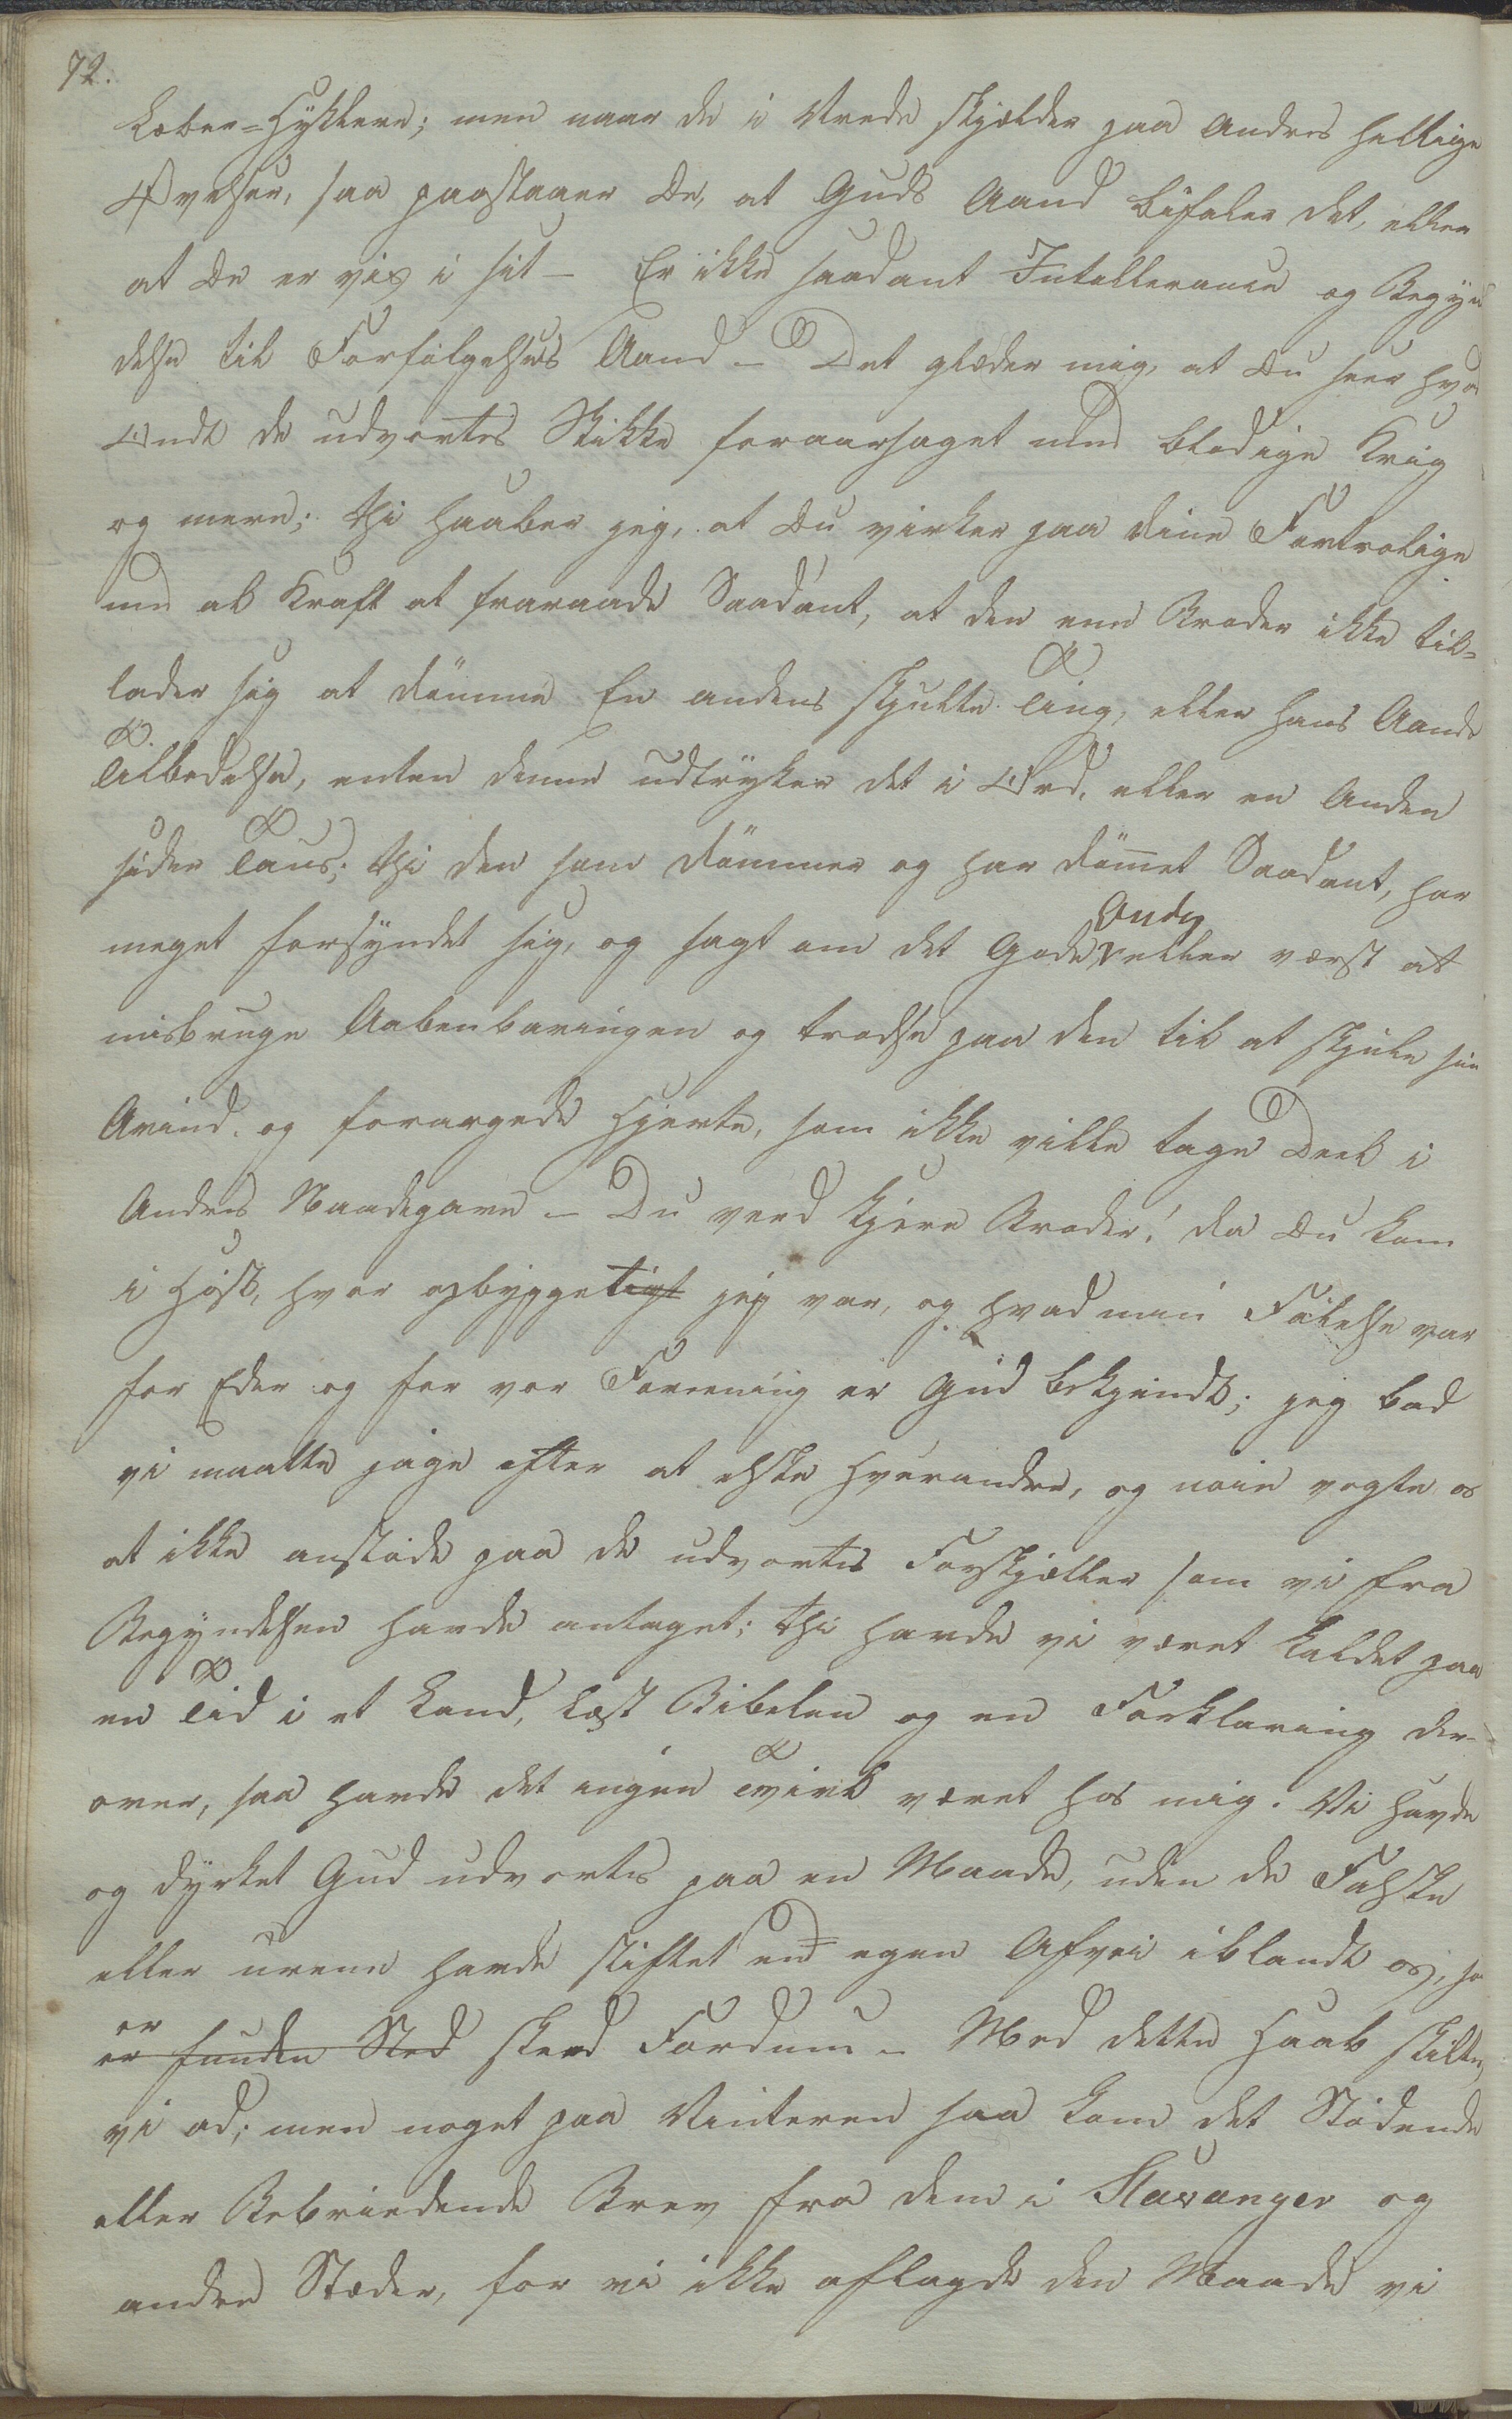 72.
Læber=Hyklere; men naar de i Vrede skjælder paa Andres hellige
Øvelser, saa paastaaer De, at Guds Aand befaler det, eller
at De er vis i sit – Er ikke saadant Intollerance og Begyn
delse til Forfølgelses Aand – Det glæder mig, at Du seer hvor
Ondt de udvortes Skikke foraarsaget med blodige Krig
og mere; thi haaber jeg, at Du virker paa dine Fortrolige
med al Kraft at fraraade Saadant, at den ene Broder ikke til=
lader sig at dømme En andens skjulte Ting, eller hans Aands
Tilbedelse, enten denne udtrykker det i Ord, eller en Anden
sider Taus; thi den som dømmer og har dømet Saadant, har
meget forsyndet sig, og sagt om det Gode Ondt eller værst at
misbruge Aabenbaringen og trodse paa den til at skjule sin
Avind og forargede Hjerte, som ikke ville tage Deel i
Andres Naadegave – Du veed kjere Broder! da Du kom
i Høst, hvor opbyggeligt jeg var, og hvad min Følelse var
for Eder og for vor Forening er Gud bekjendt; jeg bad
vi maatte jage efter at elske hverandre, og nøie vogte os
at ikke anstøde paa de udvortes Forskjæller som vi fra
Begyndelsen havde antaget; thi havde vi været kaldet paa
en Tid i et Land, læst Bibelen og en Forklaring der=
over, saa havde det ingen Tvivl været hos mig. Vi havde
og dyrket Gud udvortes paa en Maade, uden de Falske
eller urene havde stiftet en egen Afvei iblandt os, som
er
er funden Sted skeed Fordum – Med dette Haab skilte
vi ad; men noget paa Vinteren saa kom det Stødende
eller Bebreidende Brev fra dem i Stavanger og
andre Stæder, for vi ikke aflagde den Maade vi